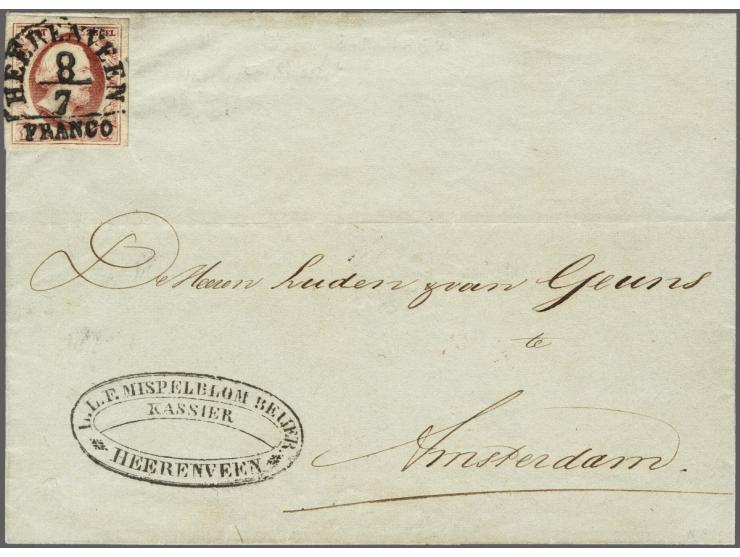 ZEGEL
HEERENVEEN
8
7
FRANCO
De Heeren Luden & van Geuns
te
Amsterdam.
L.L.F. MISPELBLOM BEIJER.
KASSIER
HEERENVEEN